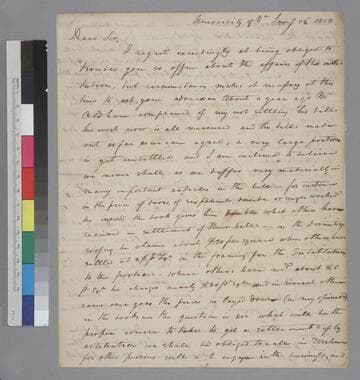 University of Va. Jany 15 1823
Dear Sir,
I regret exceedingly at being obliged to
trouble you so often about the affairs of the insti-
tution, but circumstances makes it necessary at this
time to ask your advice. About a year ago Mr
Oldham complained of my not settling his bills
his work now is all measured and the bills made
out as far as we can agree, a very large portion
is yet unsettled and I am inclined to believe
we never shall as we differ very materially in
many important articles in the bill — for instance
in the price of doors
he insists the book gives him double what others have
received in settlement of their bills — in the Dormitory
roofing he claims about per square when others have
settled at in the framing for the Entablature
to the porticos — where others have about
he charges nearly and in several other
cases one goes the price is large (in my opinion)
in the work now the question is what will be the
proper course to take to get a settlement — if by
arbitration we shall be obliged to call in Workmen
for other persons will not engage in the business, and